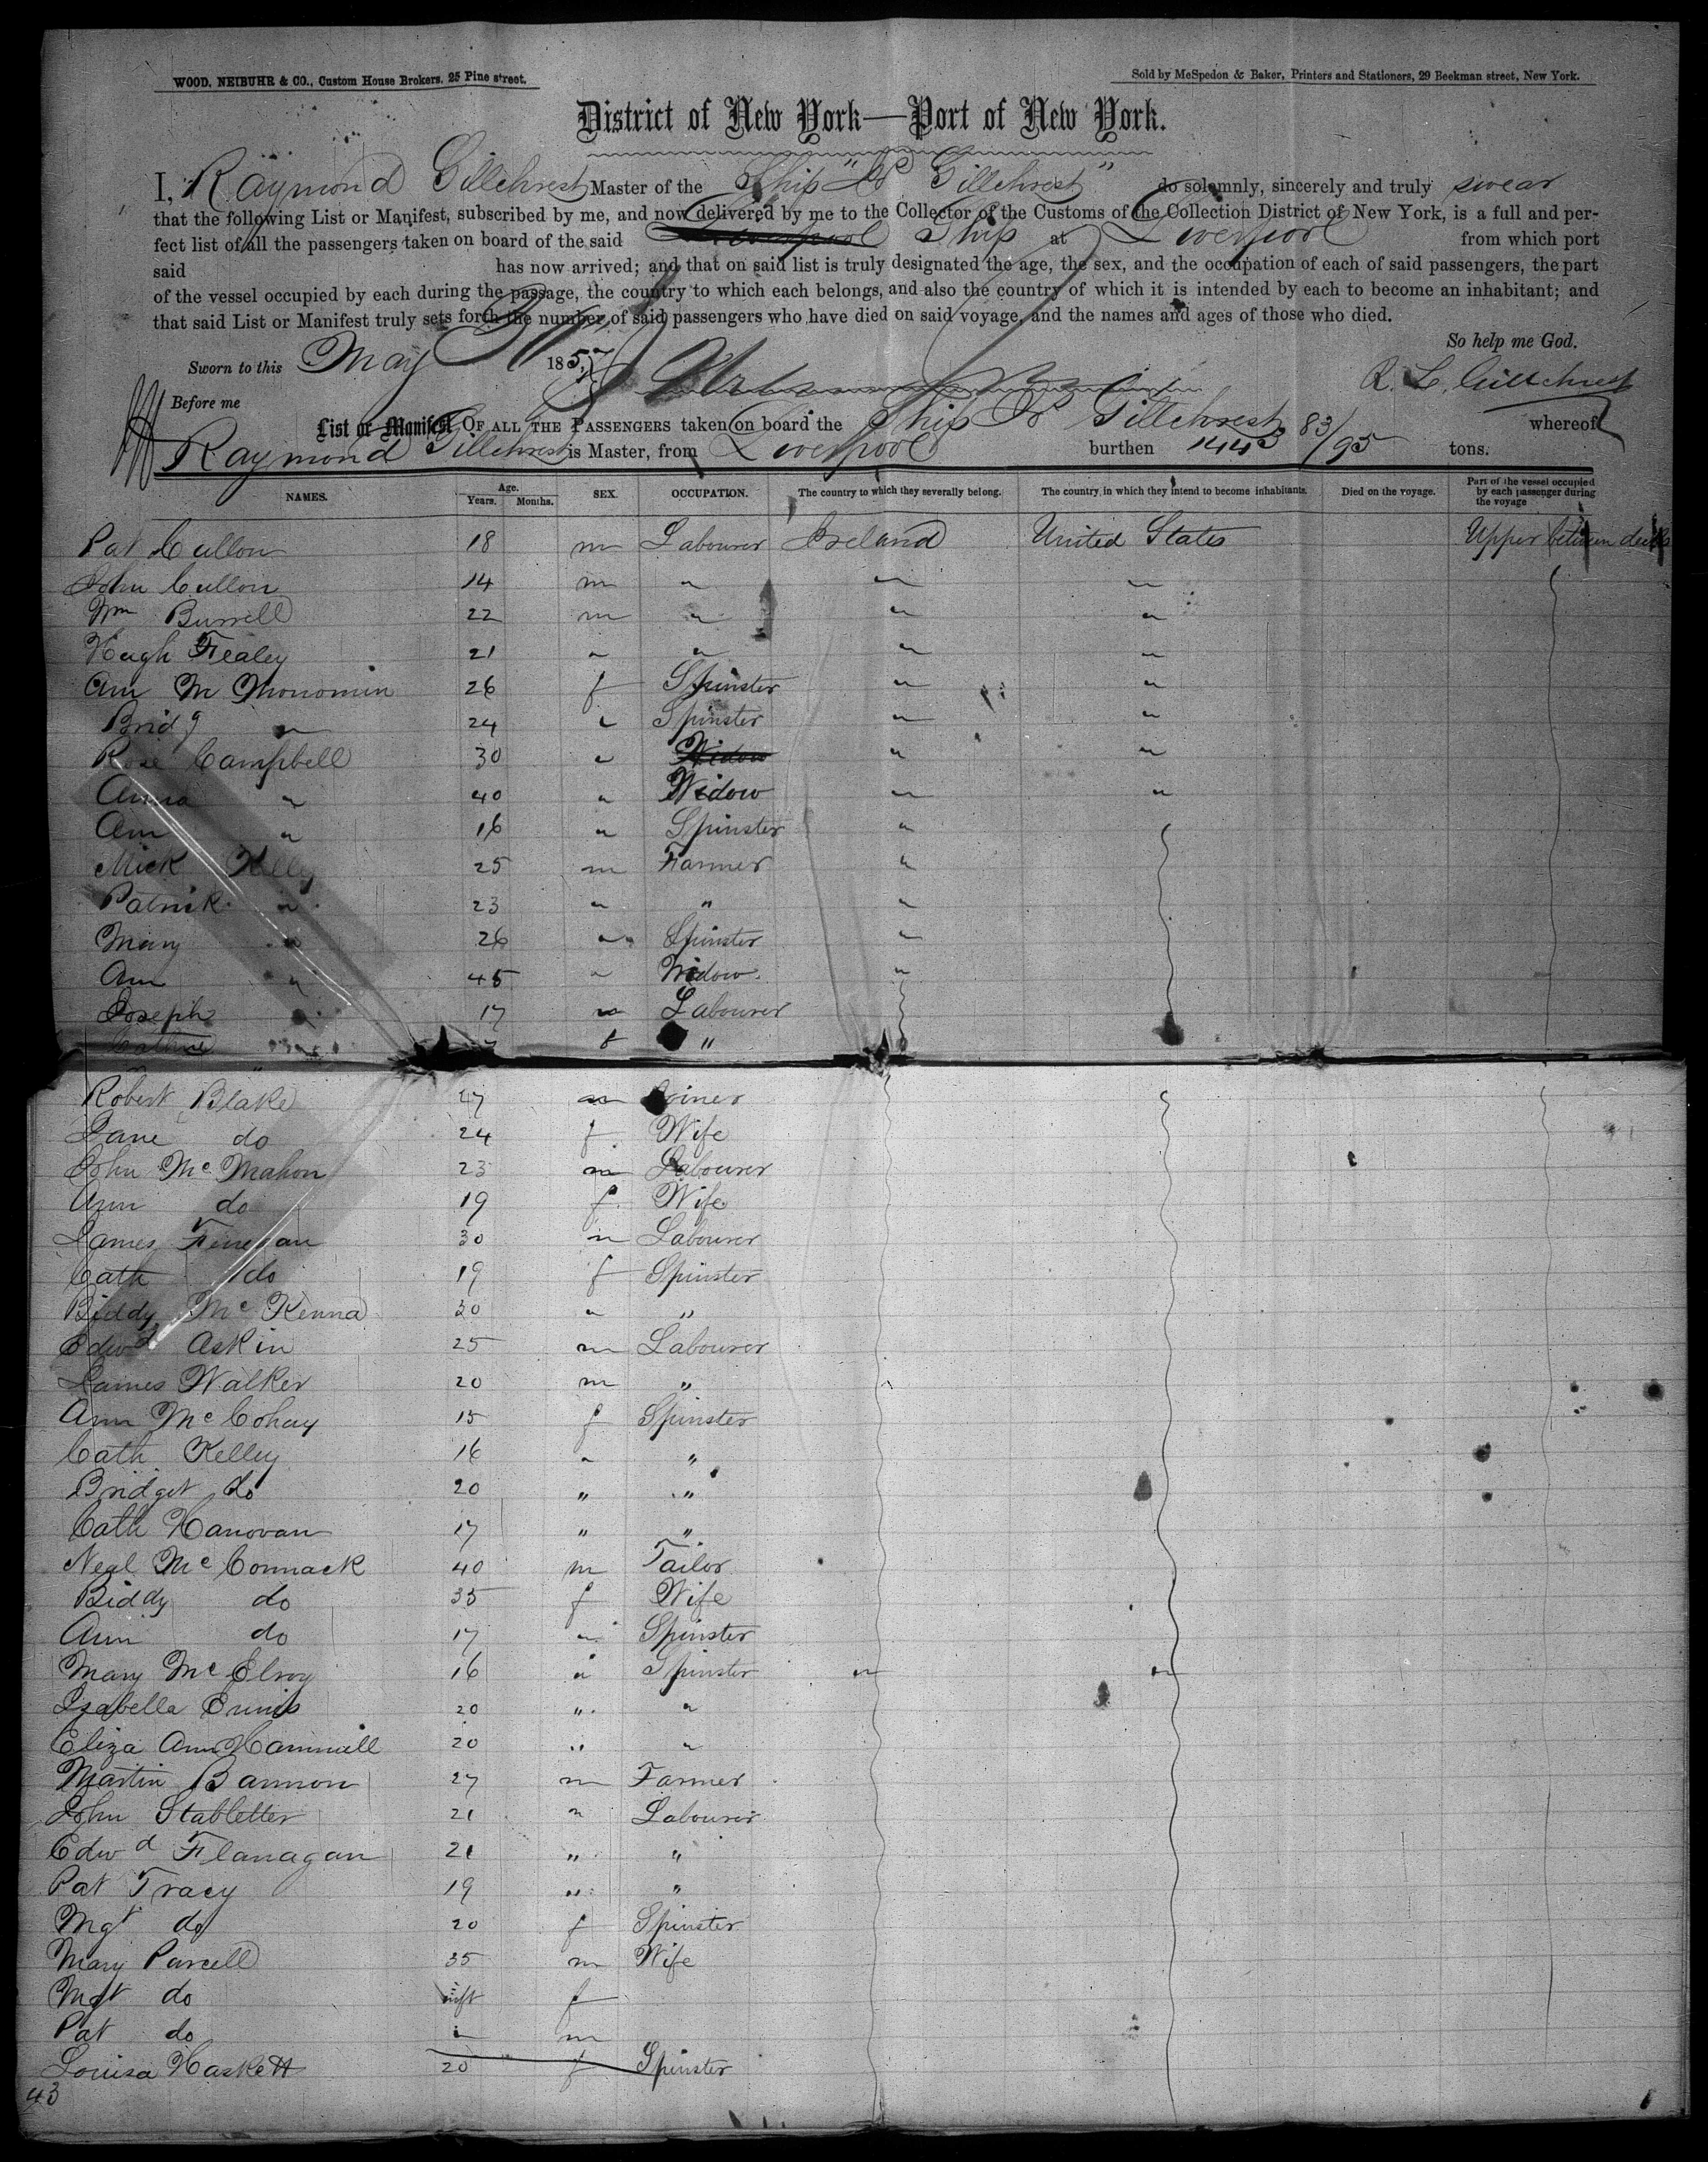 WOOD, NEIBUHR & CO., Custom House Brokers, 25 Pine street.
Sold by McSpedon & Baker, Printers and Stationers, 29 Beekman street, New York.
District of New York—Port of New York.
I, Raymond Gillchrest Master of the Ship " Gillchrest" do solemnly, sincerely and truly swear
that the following List or Manifest, subscribed by me, and now delivered by me to the Collector of the Customs of the Collection District of New York, is a full and per-
fect list of all the passengers taken on board of the said Liverpool Ship at Liverpool from which port
said has now arrived; and that on said list is truly designated the age, the sex, and the occupation of each of said passengers, the part
of the vessel occupied by each during the passage, the country to which each belongs, and also the country of which it is intended by each to become an inhabitant; and
that said List or Manifest truly sets forth the number of said passengers who have died on said voyage, and the names and ages of those who died.
So help me God.
Sworn to this May 1857
R. L. Gillchrest
Before me
List or Manifest OF ALL THE PASSENGERS taken on board the Ship Gillchrest whereof
Raymond Gillchrest is Master, from Liverpool burthen 1443 83/95 tons.
NAMES. Age. Years. Months. SEX. OCCUPATION. The country to which they severally belong. The country in which they intend to become inhabitants. Died on the voyage. Part of the vessel occupied by each passenger during the voyage
Pat Cullon 18 m Labourer Ireland United States Upper between decks
John Cullon 14 m " " "
Wm Burrell 22 m " " "
Hugh Fealey 21 " " " "
Ann 26 f Spinster " "
Bridg " 24 " Spinster " "
Rose Campbell 30 " Widow " "
Anna " 40 " Widow " "
Ann " 16 " Spinster "
Mick Kelly 25 m Farmer "
Patrick " 23 " " "
Mary " 26 " Spinster "
Ann " 45 " Widow "
Joseph " 17 m Labourer
f "
Robert Blake 27 m Joiner
Jane do 24 f Wife
John McMahon 23 m Labourer
Ann do 19 f Wife
James Finegan 30 m Labourer
Cath do 19 f Spinster
Biddy McKenna 30 " "
Edwd Askin 25 m Labourer
James Walker 20 m "
Ann McCohay 15 f Spinster
Cath Kelley 16 " "
Bridget do 20 " "
Cath Hanovan 17 " "
Neal McConnack 40 m Tailor
Biddy do 35 f Wife
Ann do 17 " Spinster
Mary McElroy 16 " Spinster " "
Izabella Ennis 20 " "
Eliza Ann Hammill 20 " "
Martin Bannon 27 m Farmer
John Stabletter 21 " Labourer
Edwd Flanagan 21 " "
Pat Tracy 19 " "
Mgt do 20 f Spinster
Mary Parcell 35 m Wife
Mgt do inft f
Pat do " m
Louisa Haskett 20 f Spinster
43